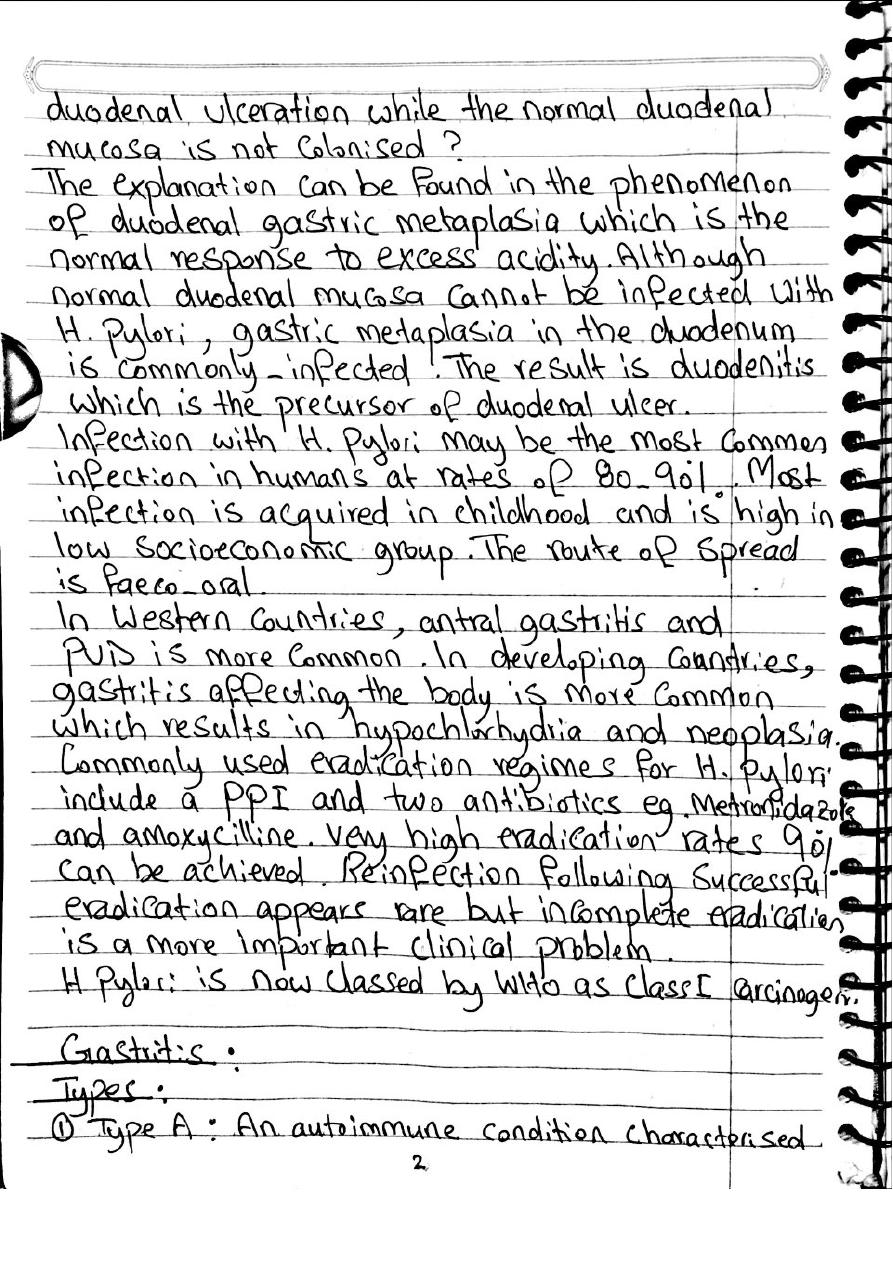 duodenal ulceration while the normal duodenal
mucosa is not Colonised ?
The explanation can be found in the phenomenon
of duodenal gastric metaplasia which is the
normal response to excess acidity. Although
normal duodenal mucosa cannot be infected with
H. Pylori, gastric metaplasia in the duodenum
is commonly-infected. The result is duodenitis
which is the precursor of duodenal ulcer.
Infection with H. Pylori may be the most common
infection in humans at rates of 80-90%. Most
infection is acquired in childhood and is high in
low socioeconomic group. The route of spread
is faeco-oral.
In Western Countries, antral gastritis and
PUD is more common. In developing Countries,
gastritis affecting the body is more common
which results in hypochlorhydria and neoplasia.
Commonly used eradication regimes for H. pylori
include a PPI and two antibiotics eg. Metronidazole
and amoxycilline. Very high eradication rates 90%
can be achieved. Reinfection following Successful
eradication appears rare but incomplete eradication
is a more important clinical problem.
H Pylori is now classed by WHO as Class I Carcinogen.
Gastritis :
Types :
① Type A : An autoimmune condition characterised
2